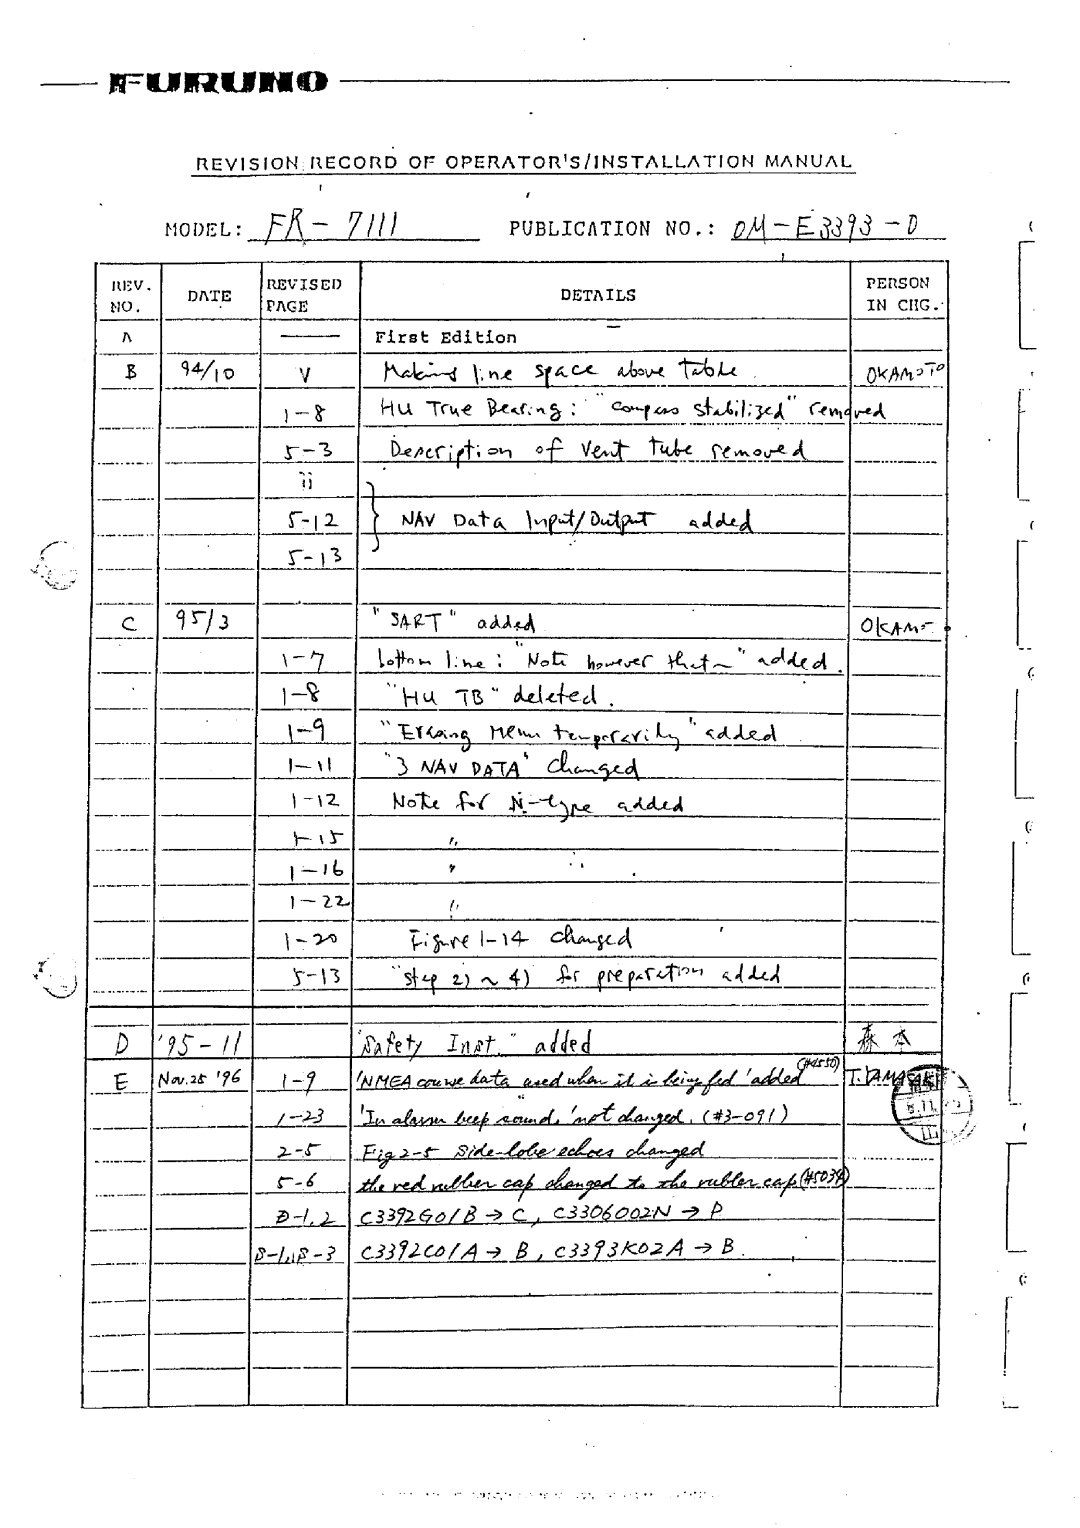 FURUNO
REVISION RECORD OF OPERATOR'S/INSTALLATION MANUAL
MODEL: FR-7111 PUBLICATION NO.: OM-E3393-D
REV. NO. DATE REVISED PAGE DETAILS PERSON IN CHG.
A —— First Edition
B 94/10 V Making line space above Table. OKAMOTO
1-8 HU True Bearing: "compass stabilized" removed
5-3 Description of vent tube removed
ii
5-12 NAV Data Input/Output added
5-13
C 95/3 "SART" added OKAMO
1-7 bottom line: "Note however that~" added.
1-8 "HU TB" deleted.
1-9 "Erasing Menu temporarily" added
1-11 "3 NAV DATA" changed
1-12 Note for N-type added
1-15 〃
1-16 〃
1-22 〃
1-20 Figure 1-14 changed
5-13 "step 2) ~ 4) for preparation added
D '95-11 "Safety Inst." added 森本
E Nov.25 '96 1-9 'NMEA course data used when it is being fed' added (#4550) T.YAMASAKI
1-23 'In alarm beep sound,' not changed. (#3-091)
2-5 Fig 2-5 Side-lobe echoes changed
5-6 the red rubber cap changed to the rubber cap
D-1,2 C3392G01B → C, C3306002N → P
S-1, S-3 C3392C01A → B, C3393K02A → B.